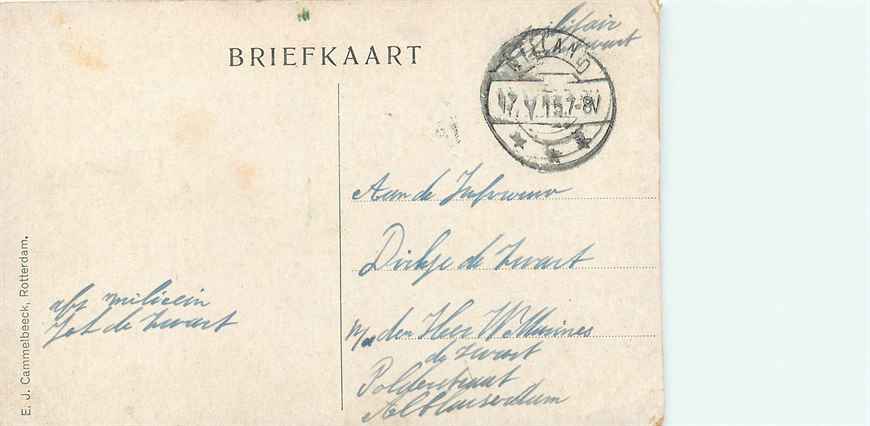 BRIEFKAART
VLIELAND
17.V.15.7-8V
Aan de Jufvrouw
Dirkje de Zwart
den Heer W Marines
de Zwart
Polderstraat
Alblasserdam
afz milicien
de Zwart
E. J. Cammelbeeck, Rotterdam.